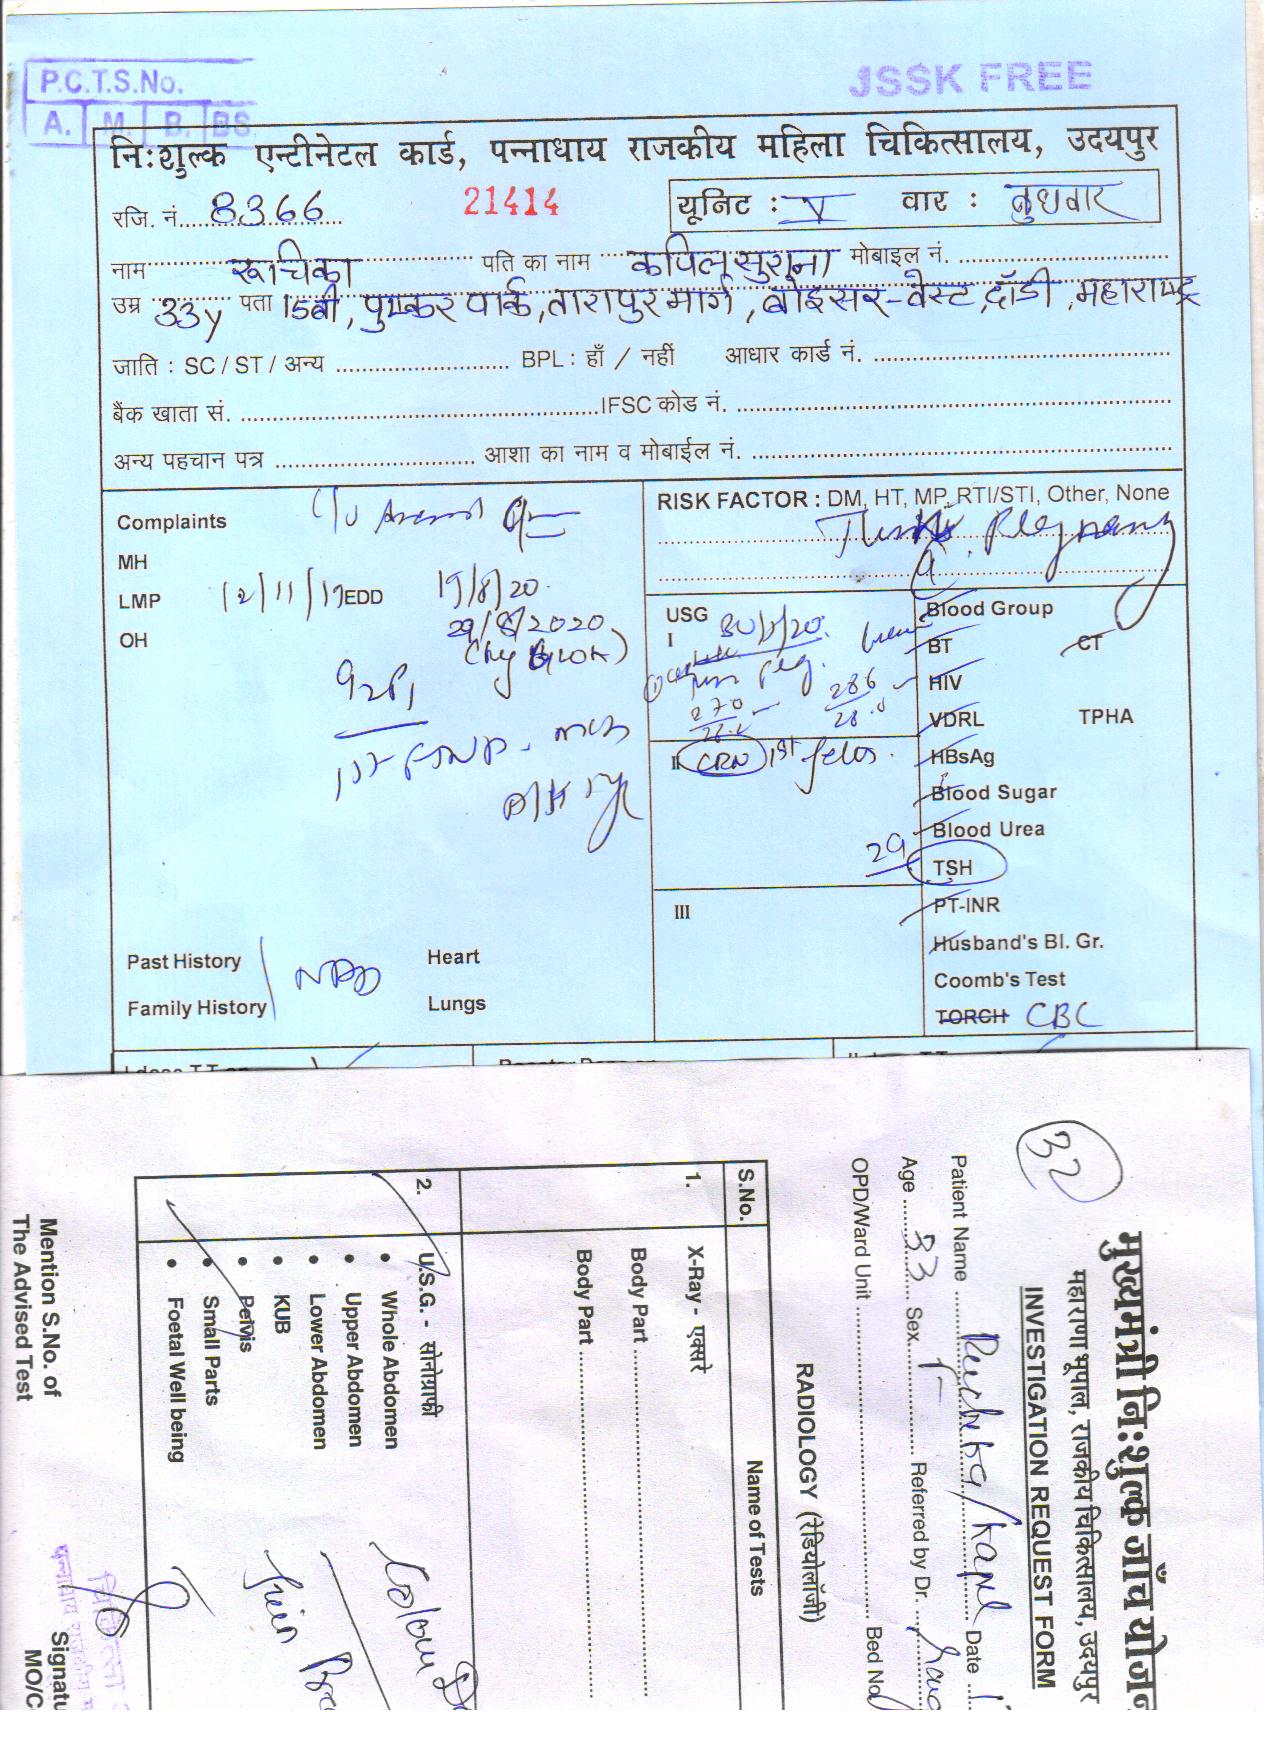 P.C.T.S.No.
A. M. B. BS
JSSK FREE
निःशुल्क एन्टीनेटल कार्ड, पन्नाधाय राजकीय महिला चिकित्सालय, उदयपुर
रजि. नं. 8366 21414 यूनिट : V वार : बुधवार
नाम रूचिका पति का नाम कपिल सुराना मोबाइल नं.
उम्र 33y पता 15बी, पुष्कर पार्क, तारापुर मार्ग, बोइसर-वेस्ट, दाँडी, महाराष्ट्र
जाति : SC / ST / अन्य BPL : हाँ / नहीं आधार कार्ड नं.
बैंक खाता सं. IFSC कोड नं.
अन्य पहचान पत्र आशा का नाम व मोबाईल नं.
Complaints C/o
MH
LMP 12/11/19 EDD 19/8/20
29/8/2020
OH
G2P1
1st FTND
Past History
Family History
Heart
Lungs
RISK FACTOR : DM, HT, MP, RTI/STI, Other, None
Pregnancy
USG
I
270 286
II CRN 1st fetus
III
Blood Group
BT CT
HIV
VDRL TPHA
HBsAg
Blood Sugar
Blood Urea
29 TSH
PT-INR
Husband's Bl. Gr.
Coomb's Test
TORCH CBC
I dose T.T on
32
मुख्यमंत्री निःशुल्क जाँच
महाराणा भूपाल, राजकीय चिकित्सालय, उदयपुर
INVESTIGATION REQUEST FORM
Patient Name Ruchika/Kapil Date
Age 33 Sex F Referred by Dr.
OPD/Ward Unit Bed No
RADIOLOGY (रेडियोलॉजी)
S.No. Name of Tests
1. X-Ray - एक्सरे
Body Part
Body Part
2. U.S.G. - सोनोग्राफी
• Whole Abdomen Colour
• Upper Abdomen
• Lower Abdomen
• KUB
• Pelvis
• Small Parts
• Foetal Well being
Mention S.No. of
The Advised Test
MO/C